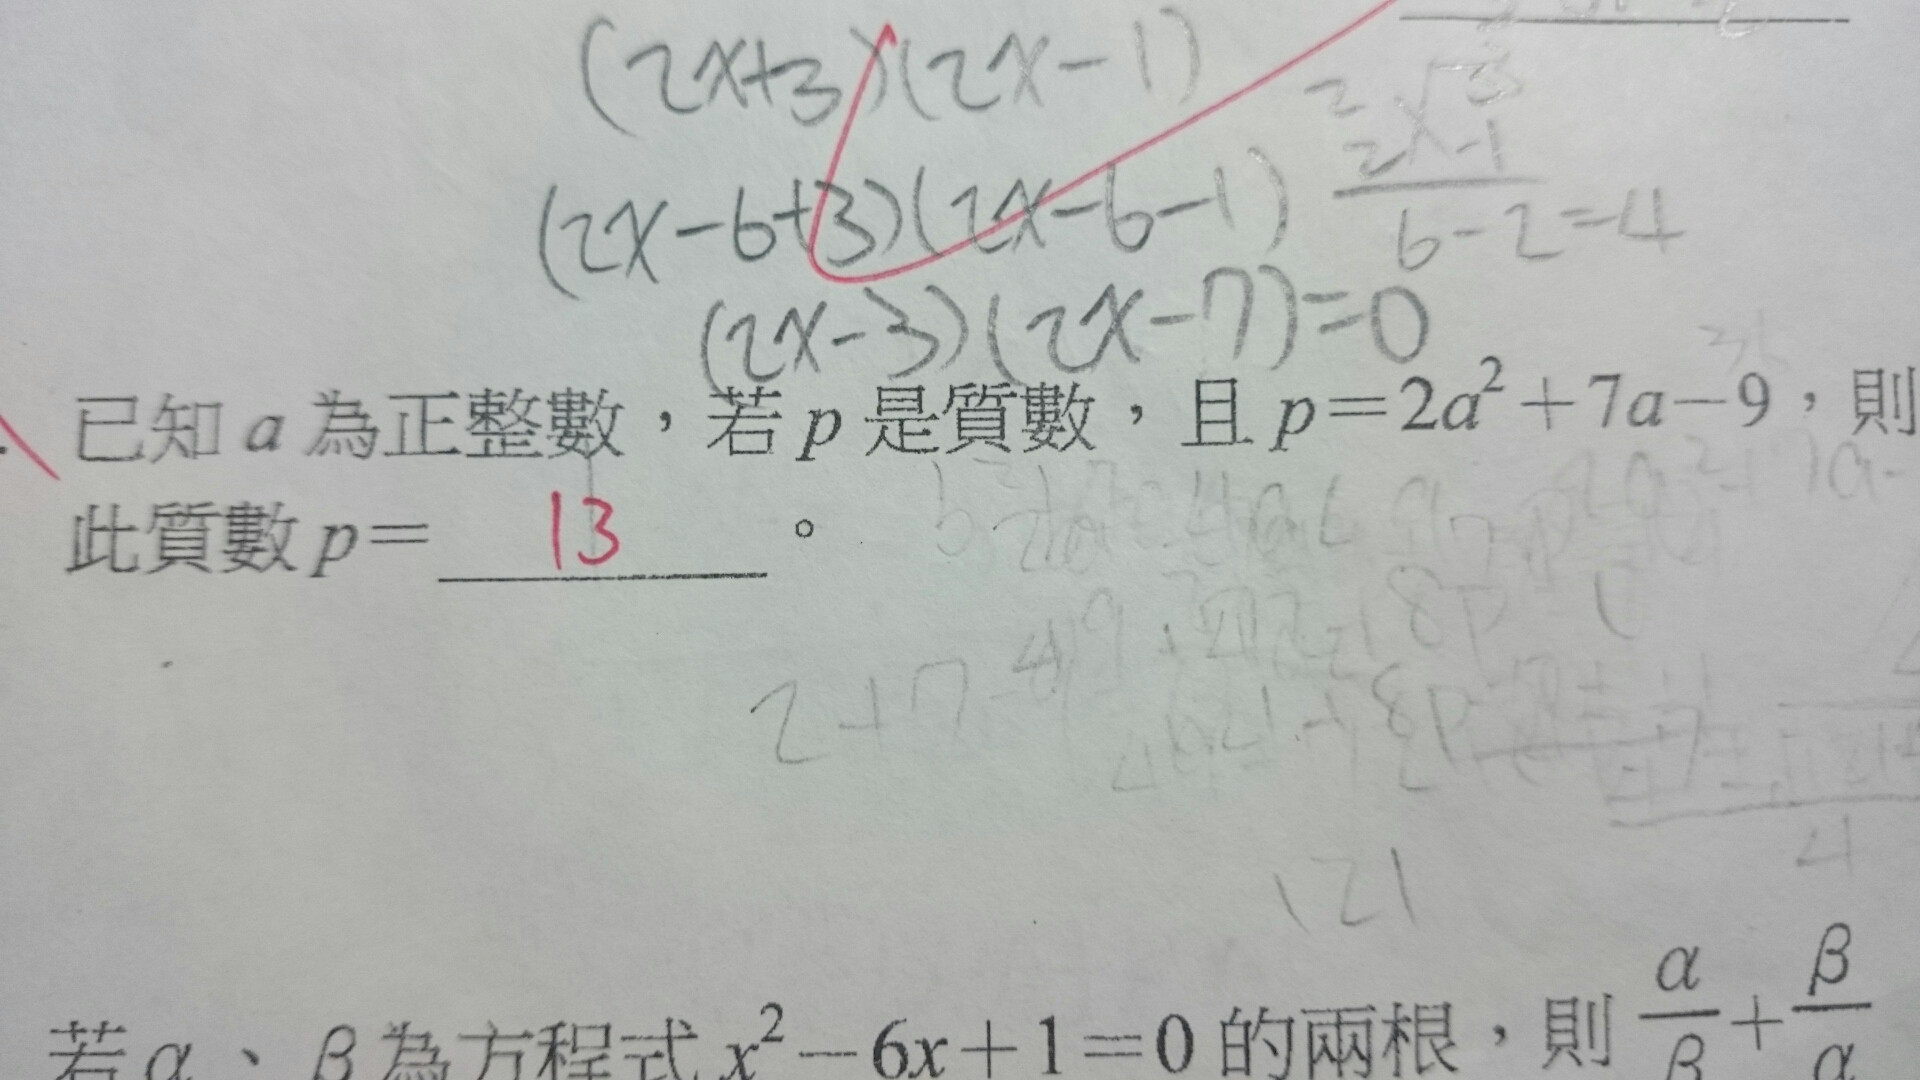 (2x+3)(2x-1)
2 3
2 -1
(2x-6+3)(2x-6-1)
6-2=-4
(2x-3)(2x-7)=0
已知 a 為正整數，若 p 是質數，且 p=2a²+7a-9，則
此質數 p= 13 。
2+7
121
4
若 α、β 為方程式 x²-6x+1=0 的兩根，則 α/β + β/α